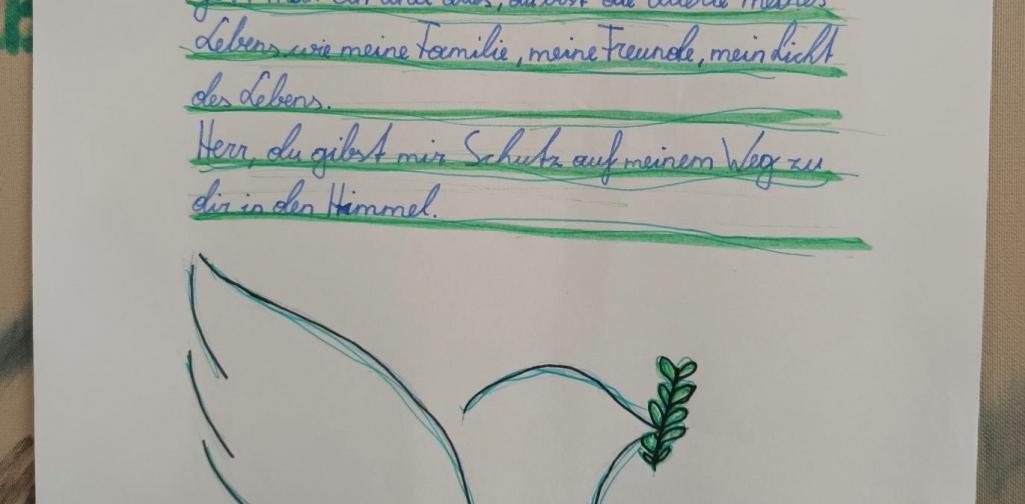 Lebens wie meine Familie, meine Freunde, mein Licht
des Lebens.
Herr, du gibst mir Schutz auf meinem Weg zu
dir in den Himmel.